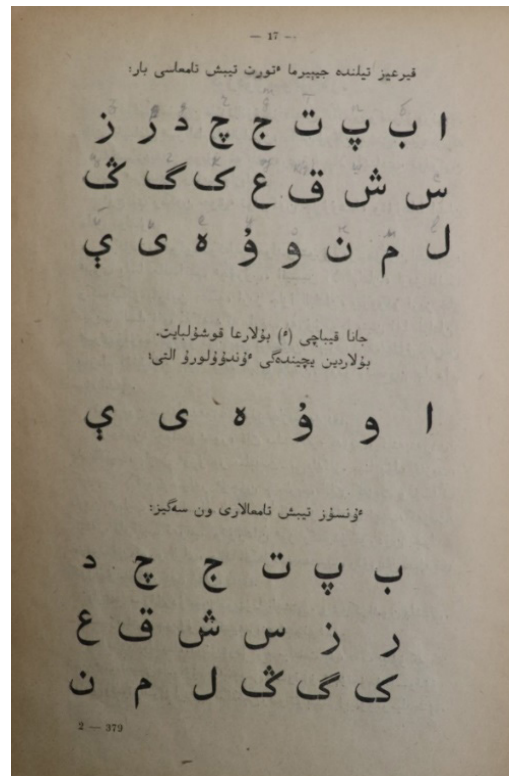 — 17 —
قيرعيز تيلنده جيييرما ٴتورت تيبش تامعاسى بار:
ا ب پ ت ج چ د ر ز
س ش ق ع ک گ ڭ
ل م ن و ۇ ه ى ې
جانا قيباچى (ٴ) بۇلارعا قوشۇلبايت.
بۇلاردين يچيندەگى ٴۇندۇۇلورۇ التى:
ا و ۇ ه ى ې
ٴۇنسۇز تيبش تامعالارى ون سەگيز:
ب پ ت ج چ د
ر ز س ش ق ع
ک گ ڭ ل م ن
2 — 379